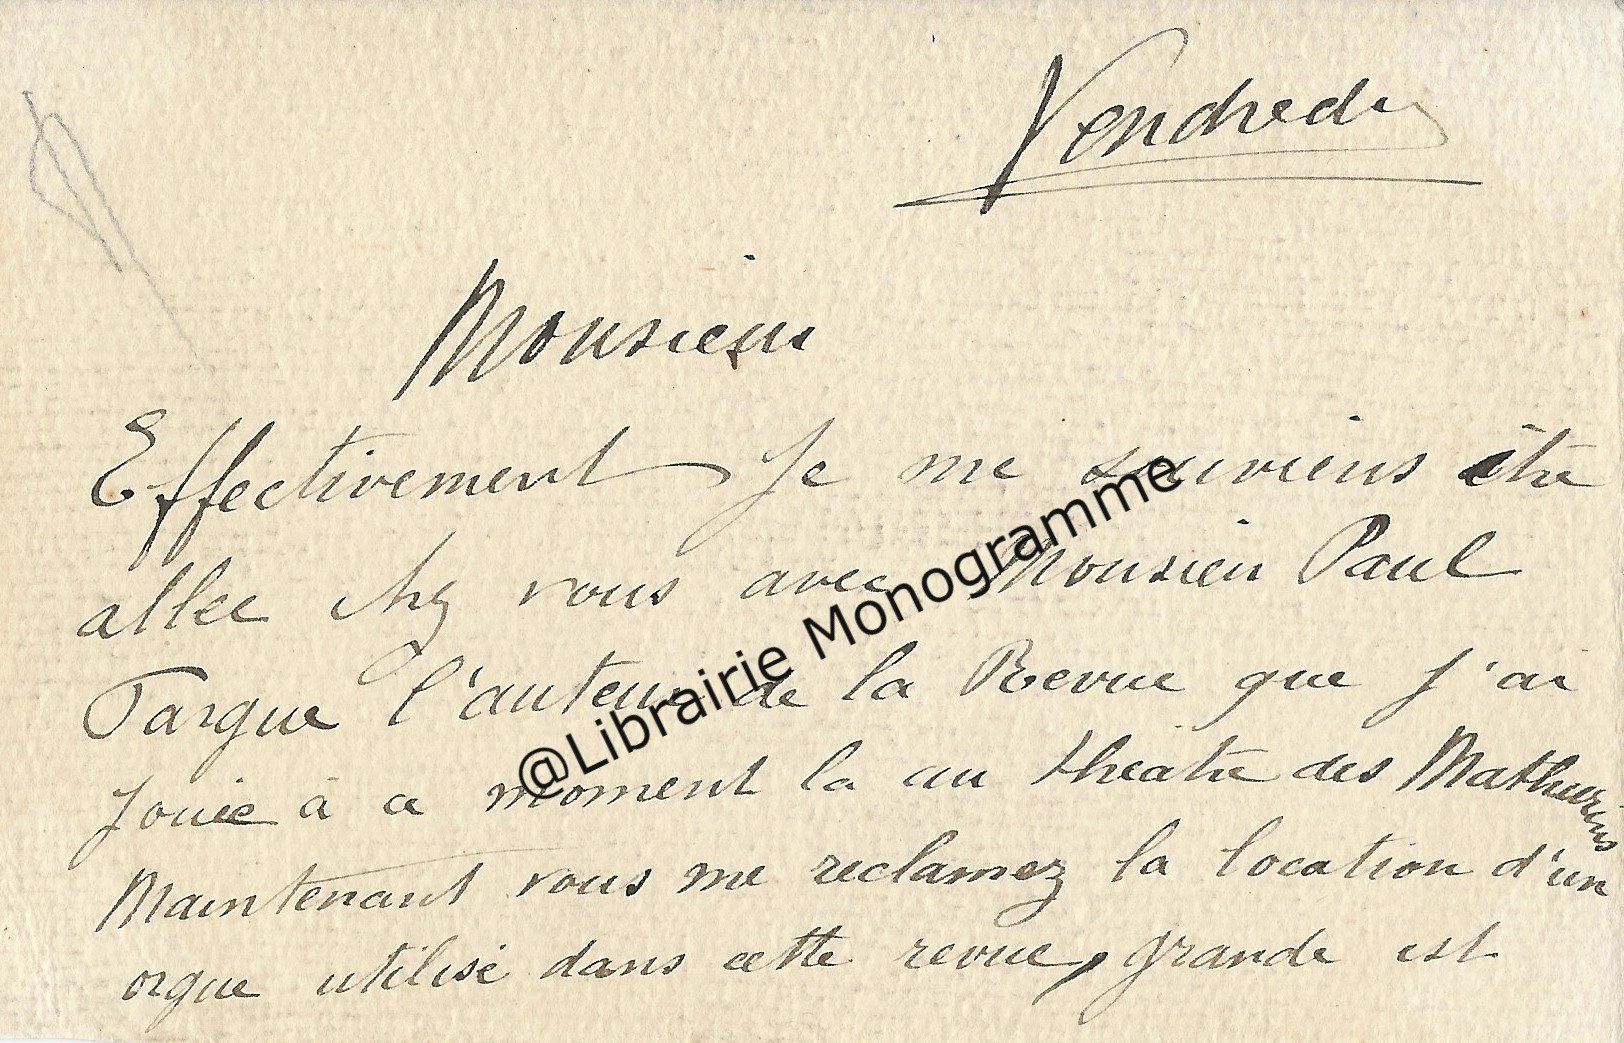 Vendredi
Monsieur
Effectivement Je me souviens être
allee chez vous avec Monsieur Paul
Fargue l'auteur de la Revue que j'ai
Jouée à ce moment la au théatre des Mathurins
Maintenant vous me reclamez la location d'un
orgue utilisé dans cette revue, grande est
@Librairie Monogramme